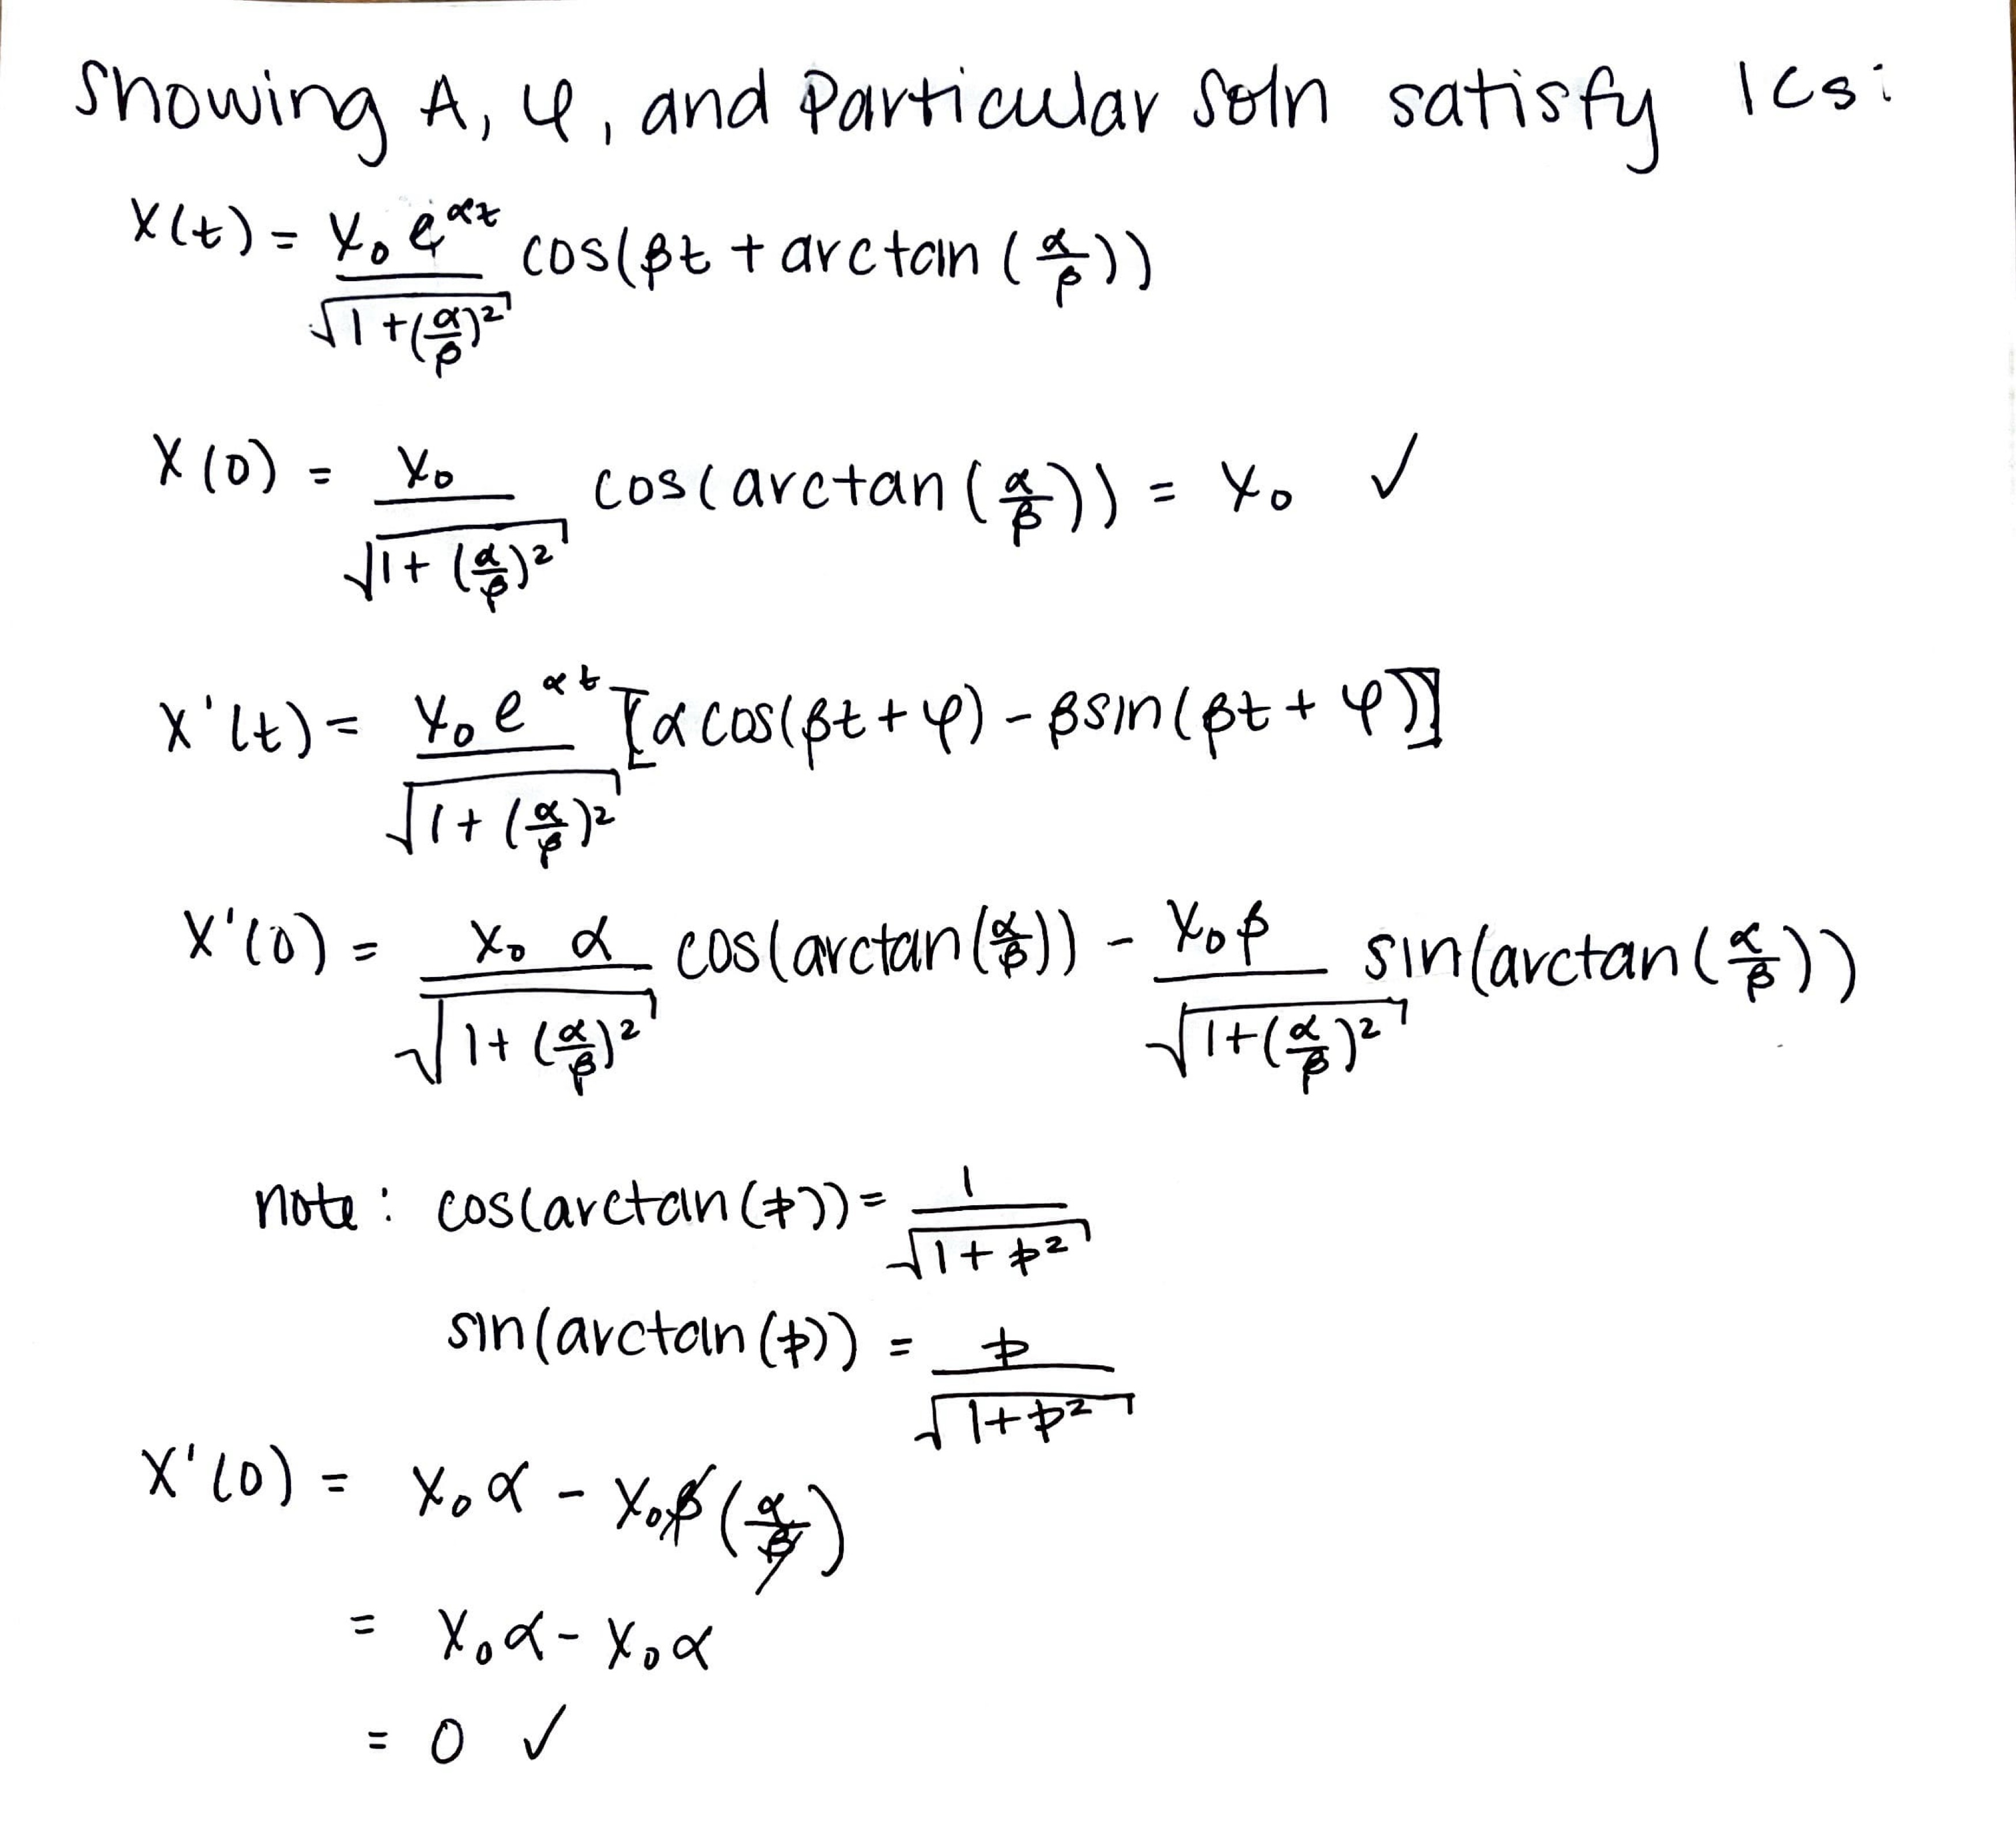 Showing A, φ, and Particular Soln satisfy ICs:
x(t) = \frac{x₀ e^{αt}}{\sqrt{1+(\frac{α}{β})^2}} cos(βt + arctan(\frac{α}{β}))
x(0) = \frac{x₀}{\sqrt{1+(\frac{α}{β})^2}} cos(arctan(\frac{α}{β})) = x₀ ✓
x'(t) = \frac{x₀ e^{αt}}{\sqrt{1+(\frac{α}{β})^2}} [α cos(βt + φ) - β sin(βt + φ)]
x'(0) = \frac{x₀ α}{\sqrt{1+(\frac{α}{β})^2}} cos(arctan(\frac{α}{β})) - \frac{x₀ β}{\sqrt{1+(\frac{α}{β})^2}} sin(arctan(\frac{α}{β}))
note: cos(arctan(p)) = \frac{1}{\sqrt{1+p^2}}
sin(arctan(p)) = \frac{p}{\sqrt{1+p^2}}
x'(0) = x₀α - x₀β(\frac{α}{β})
= x₀α - x₀α
= 0 ✓